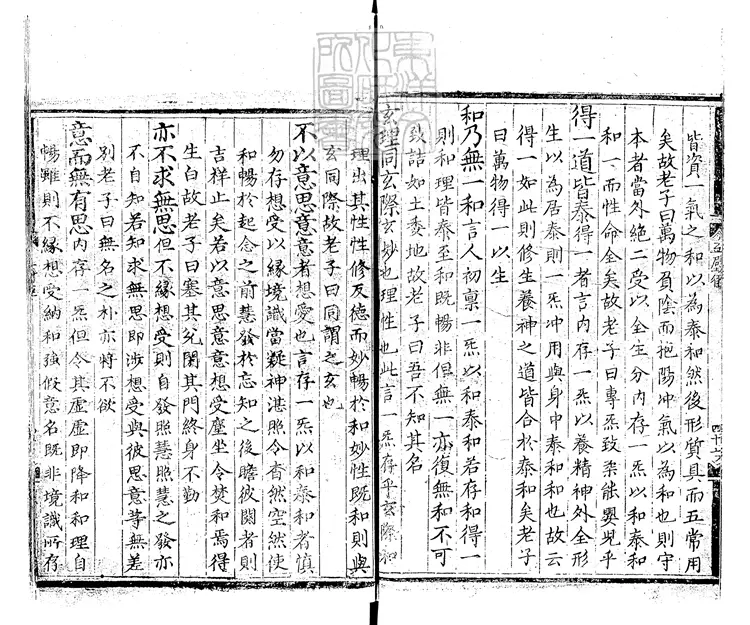 皆資一氣之和以為泰和然後形質具而五常用
矣故老子曰萬物負陰而抱陽冲氣以為和也則守
本者當外絕二受以全生分內存一炁以和泰和
和一而性命全矣故老子曰專炁致柔能嬰兒乎
得一道皆泰得一者言內存一炁以養精神外全形
生以為居泰則一炁冲用與身中泰和和也故云
得一如此則修生養神之道皆合於泰和矣老子
曰萬物得一以生
和乃無一和言人初稟一炁以和泰和若存和得一
則和理皆泰至和既暢非但無一亦復無和不可
致詰如土委地故老子曰吾不知其名
玄理同玄際玄妙也理性也此言一炁存乎玄際和
理出其性性修反德而妙暢於和妙性既和則與
玄同際故老子曰同謂之玄也
不以意思意意者想受也言存一炁以和泰和者慎
勿存想受以緣境識當凝神湛照令杳然空然使
和暢於起念之前慧發於忘知之後瞻彼闋者則
吉祥止矣若以意思意意想受塵坐令焚和焉得
生白故老子曰塞其兌閉其門終身不勤
亦不求無思但不緣想受則自發照慧照慧之發亦
不自知若知求無思即涉想受與彼思意等無差
別老子曰無名之朴亦將不欲
意而無有思內存一炁但令其虛虛即降和和理自
暢雖則不緣想受納和強假意名既非境識所存